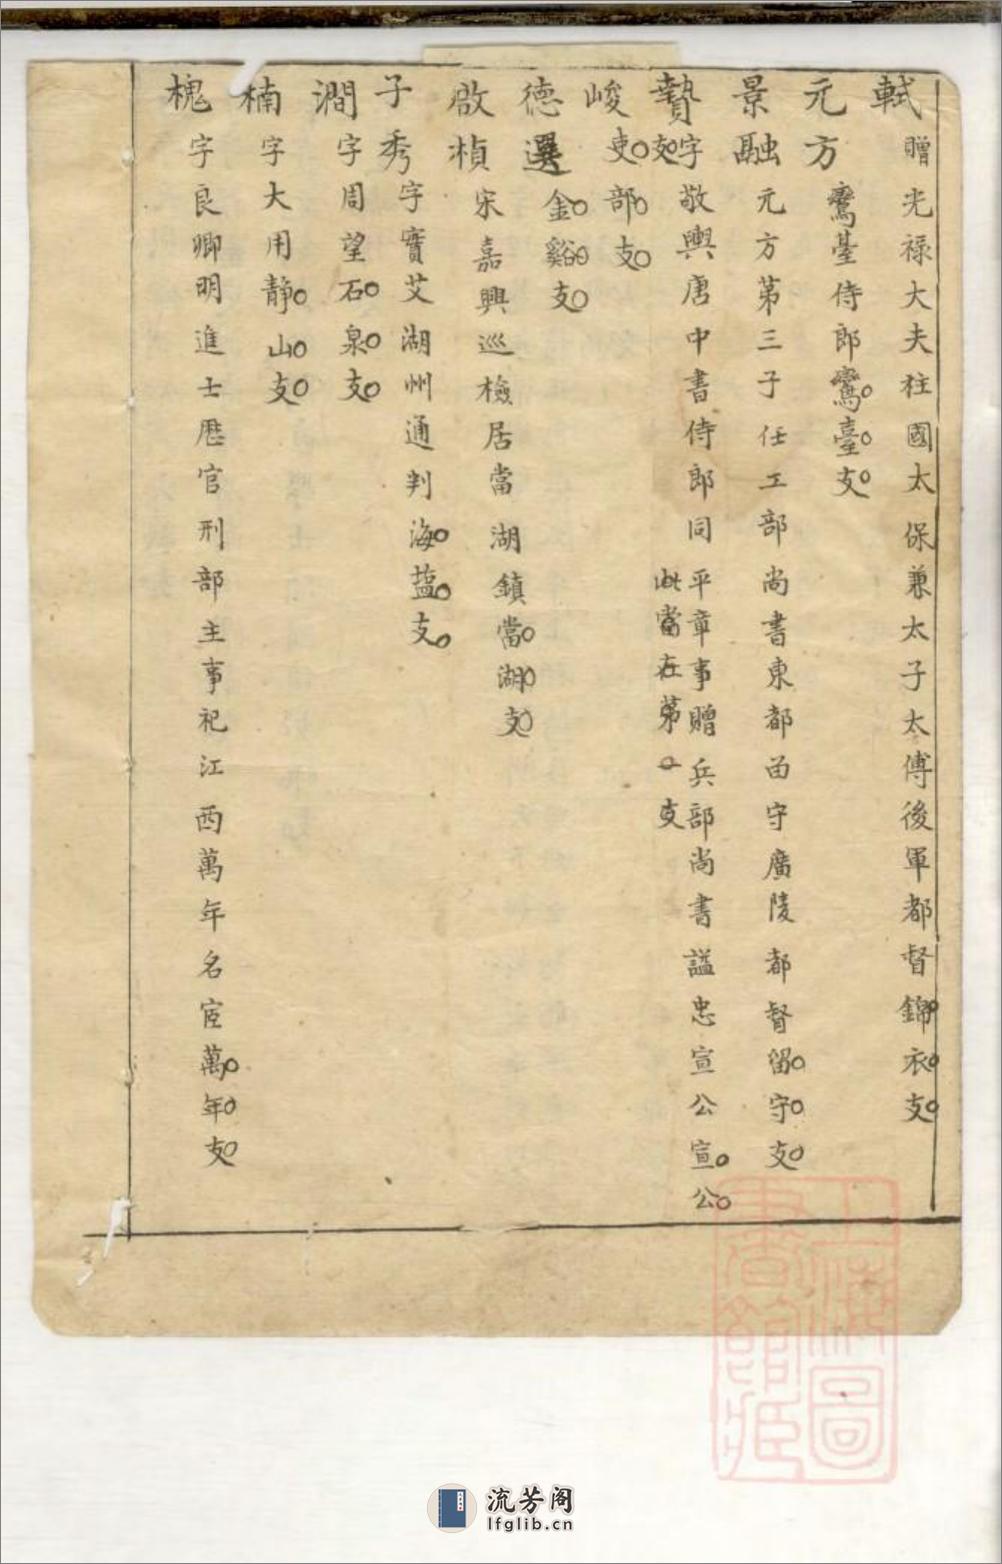 軾贈光禄大夫柱國太保兼太子太傅後軍都督錦衣支
元方鸞臺侍郎鸞臺支
景融元方第三子任工部尚書東都畄守廣陵都督留守支
贄字敬輿唐中書侍郎同平章事贈兵部尚書謚忠宣公宣公
支
此當在第一支
峻吏部支
德選金谿支
啟楨宋嘉興巡檢居當湖鎮當湖支
子秀字寶艾湖州通判海塩支
澗字周望石泉支
楠字大用静山支
槐字良卿明進士歷官刑部主事祀江西萬年名宦萬年支
上海圖書館藏
流芳阁
lfglib.cn